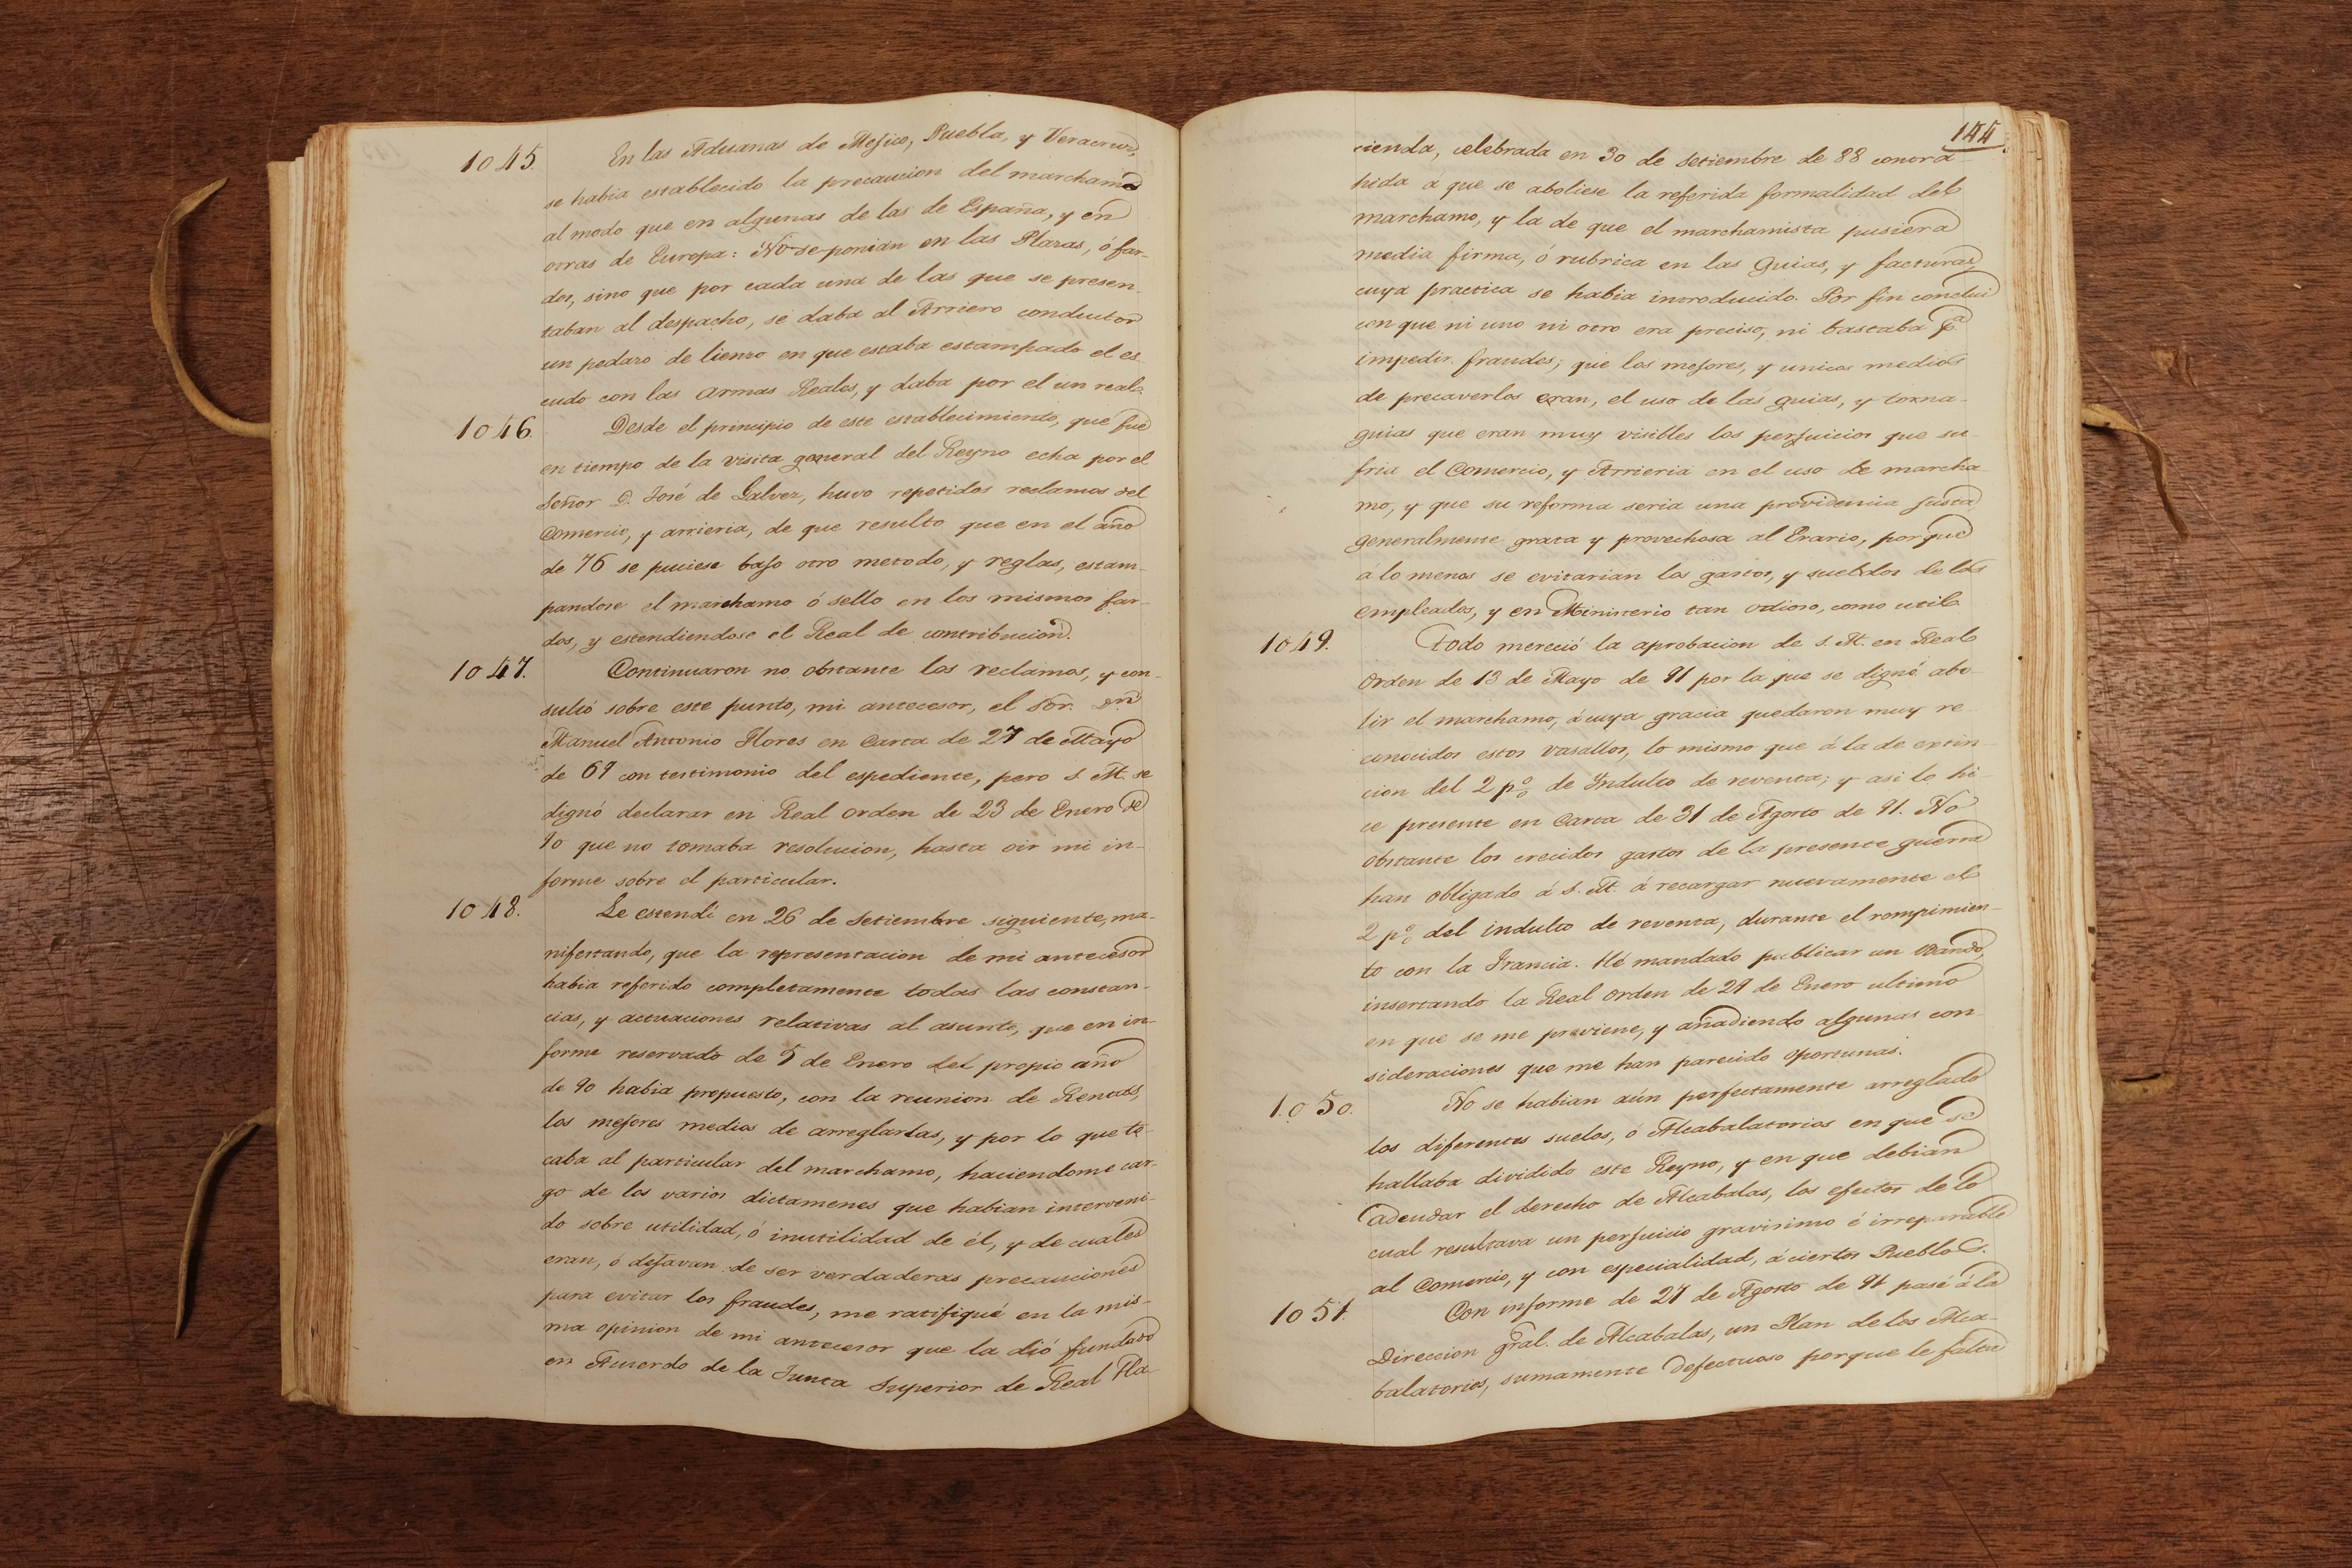 1045. En las Aduanas de Mejico, Puebla, y Veracruz,
se habia establecido la precaucion del marchamo
al modo que en algunas de las de España, y en
otras de Europa: No se ponian en las Plazas, ó far-
dos, sino que por cada una de las que se presen-
taban al despacho, se daba al Arriero conductor
un pedazo de lienzo en que estaba estampado el es
cudo con las Armas Reales, y daba por el un real.
1046. Desde el principio de este establecimiento, que fue
en tiempo de la visita general del Reyno echa por el
Señor D. José de Galvez, huvo repetidos reclamos del
Comercio, y arrieria, de que resulto que en el año
de 76 se puciese bajo otro metodo, y reglas, estam-
pandose el marchamo ó sello en los mismos far-
dos, y estendiendose el Real de contribucion.
1047. Continuaron no obstante los reclamos, y con-
sultó sobre este punto, mi antecesor, el Sor. Dn
Manuel Antonio Flores en Carta de 27 de Mayo
de 69 con testimonio del espediente, pero S. M. se
dignó declarar en Real Orden de 23 de Enero de
90 que no tomaba resolucion, hasta oir mi in-
forme sobre el particular.
1048. Le estendi en 26 de Setiembre siguiente, ma-
nifestando, que la representacion de mi antecesor
habia referido completamente todas las constan-
cias, y actuaciones relativas al asunto, que en in-
forme reservado de 5 de Enero del propio año
de 90 habia propuesto, con la reunion de Rentas,
los mejores medios de arreglarlas, y por lo que to-
caba al particular del marchamo, haciendome car-
go de los varios dictamenes que habian interveni-
do sobre utilidad, ó inutilidad de él, y de cuales
eran, ó dejavan de ser verdaderas precauciones
para evitar los fraudes, me ratifiqué en la mis-
ma opinion de mi antecesor que la dió fundado
en Acuerdo de la Junta Superior de Real Ha-
144
cienda, celebrada en 30 de Setiembre de 88 contra-
hida á que se aboliese la referida formalidad del
marchamo, y la de que el marchamista pusiera
media firma, ó rubrica en las Guias, y facturas,
cuya practica se habia introducido. Por fin conclui
con que ni uno ni otro era preciso, ni bastaba pa
impedir fraudes; que los mejores, y unicos medios
de precaverlos eran, el uso de las guias, y torna-
guias que eran muy visibles los perjuicios que su-
fria el Comercio, y Arrieria en el uso de marcha-
mo, y que su reforma seria una providencia justa
generalmente grata y provechosa al Erario, porque
á lo menos se evitarian los gastos, y sueldos de los
empleados, y en Ministerio tan odioso, como util.
1049. Todo mereció la aprobacion de S. M. en Real
Orden de 13 de Mayo de 91 por la que se dignó abo-
lir el marchamo, á cuya gracia quedaron muy re-
conocidos estos vasallos, lo mismo que á la de extin-
cion del 2 p%o de Indulto de reventa; y asi lo hi-
ce presente en Carta de 31 de Agosto de 91. No
obstante los crecidos gastos de la presente guerra
han obligado á S. M. á recargar nuevamente el
2 p%o del indulto de reventa, durante el rompimien-
to con la Francia. Hé mandado publicar un Vando,
insertando la Real Orden de 29 de Enero ultimo
en que se me previene, y añadiendo algunas con-
sideraciones que me han parecido oportunas.
1050. No se habian aún perfectamente arreglado
los diferentes suelos, ó Alcabalatorios en que se
hallaba dividido este Reyno, y en que debian
adeudar el derecho de Alcabalas, los efectos de lo
cual resultava un perjuicio gravisimo é irreparable
al Comercio, y con especialidad, á ciertos Pueblos.
1051. Con informe de 27 de Agosto de 91 pasé á la
Direccion Gral. de Alcabalas, un Plan de los Alca-
balatorios, sumamente defectuoso porque le falta